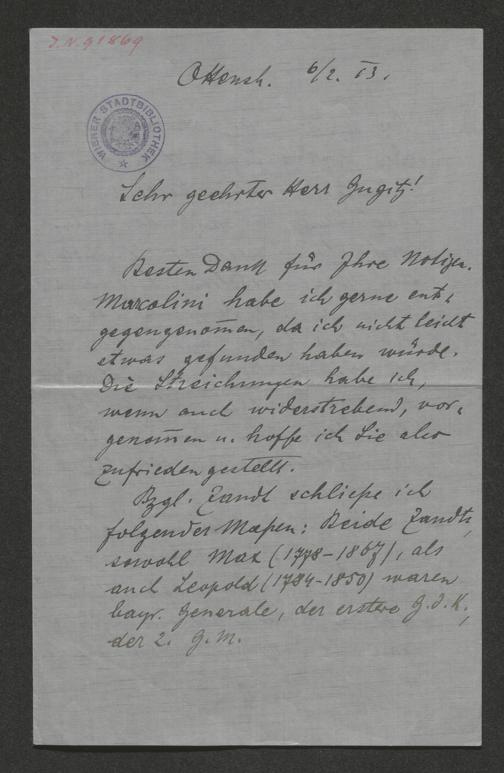 I.N. 91869
Ottensh. 6/2. 13.
WIENER STADTBIBLIOTHEK
Sehr geehrter Herr Gugitz!
Besten Dank für Ihre Notizen.
Marcolini habe ich gerne ent-
gegengenom̅en, da ich nicht leicht
etwas gefunden haben würde.
Die Streichungen habe ich,
wenn auch widerstrebend, vor-
genom̅en u. hoffe ich Sie also
zufrieden gestellt.
Bzgl. Zandt schließe ich
folgender Maßen: Beide Zandts,
sowohl Max (1778-1867), als
auch Leopold (1784-1850) waren
bayr. Generale, der erstere G.d.K.,
der 2. G.M.